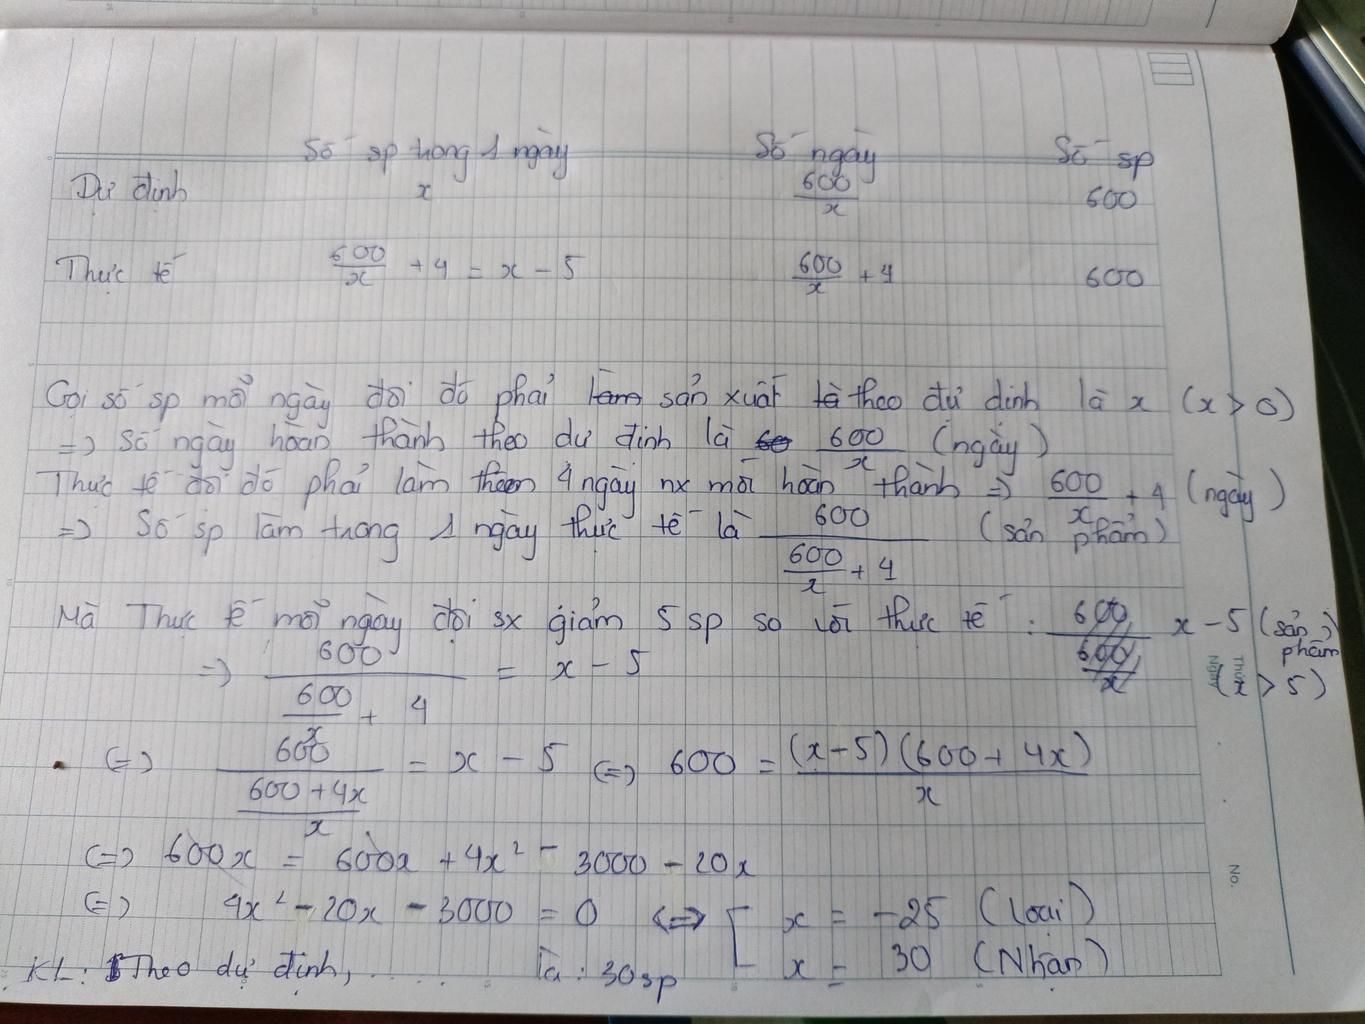 Số sp trong 1 ngày Số ngày Số sp
Dự định x 600/x 600
Thực tế 600/x + 4 = x - 5 600/x + 4 600
Gọi số sp mỗi ngày đội đó phải làm sản xuất là theo dự định là x (x > 0)
=> Số ngày hoàn thành theo dự định là 600/x (ngày)
Thực tế đội đó phải làm thêm 4 ngày nx mới hoàn thành => 600/x + 4 (ngày)
=> Số sp làm trong 1 ngày thực tế là 600/(600/x + 4) (sản phẩm)
Mà Thực tế mỗi ngày đội sx giảm 5 sp so với thực tế : 600/(600/x) x - 5 (sản phẩm)
(x > 5)
=> 600/(600/x + 4) = x - 5
<=> 600/((600 + 4x)/x) = x - 5 <=> 600 = (x - 5)(600 + 4x)/x
<=> 600x = 600x + 4x² - 3000 - 20x
<=> 4x² - 20x - 3000 = 0 <=> [ x = -25 (loại)
x = 30 (Nhận)
KL: Theo dự định, .... là : 30 sp
No.